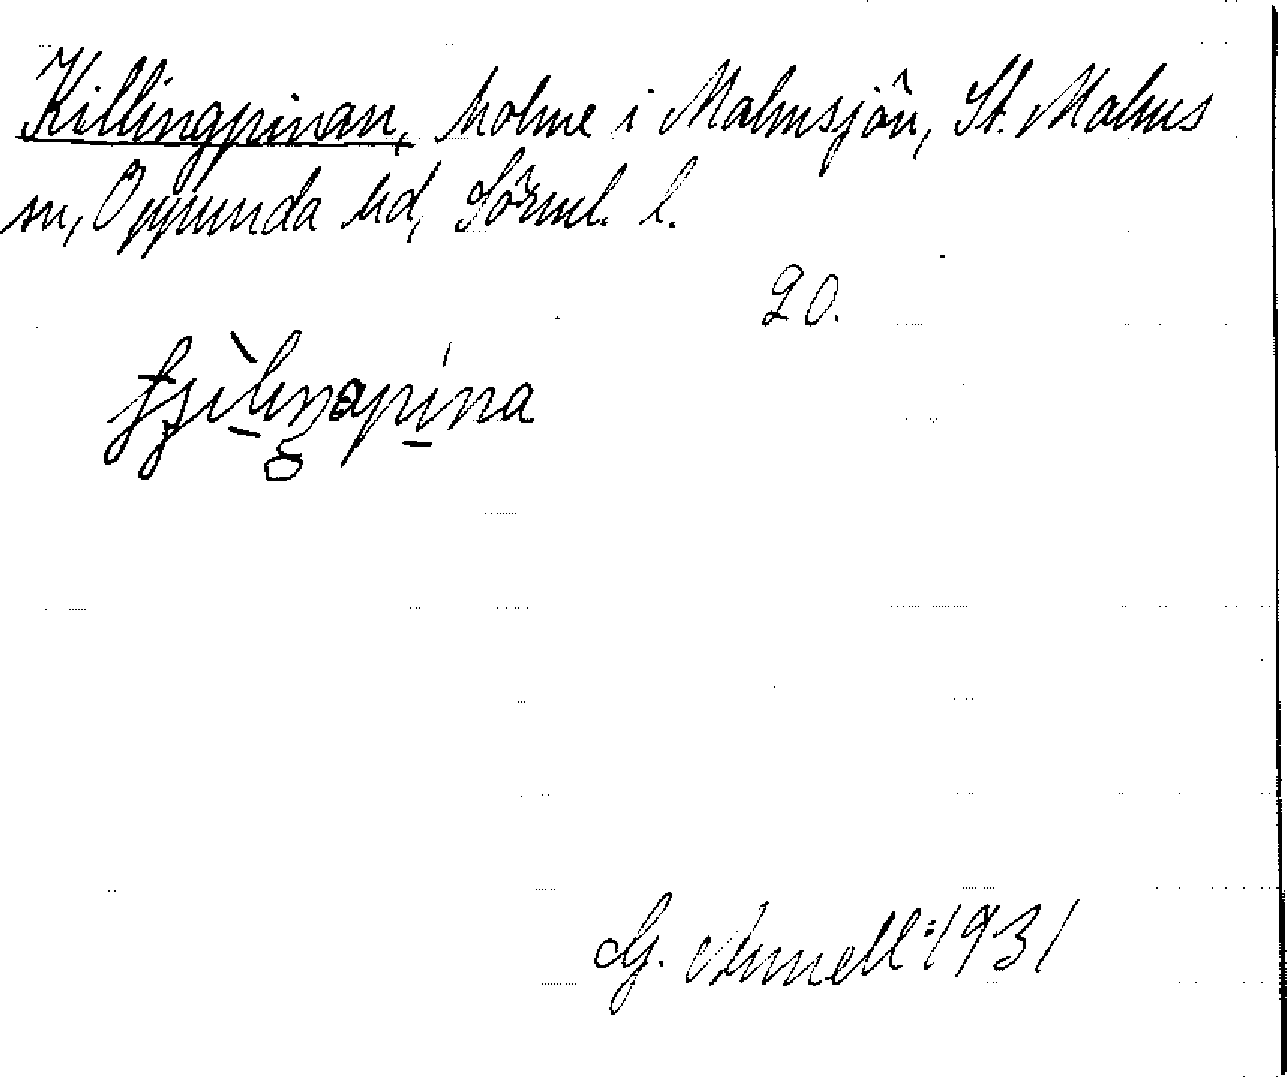 Killingpinan, holme i Malmsjön, St. Malms
sn, Oppunda hd, Sörml. l.
20.
G. Arnell 1931